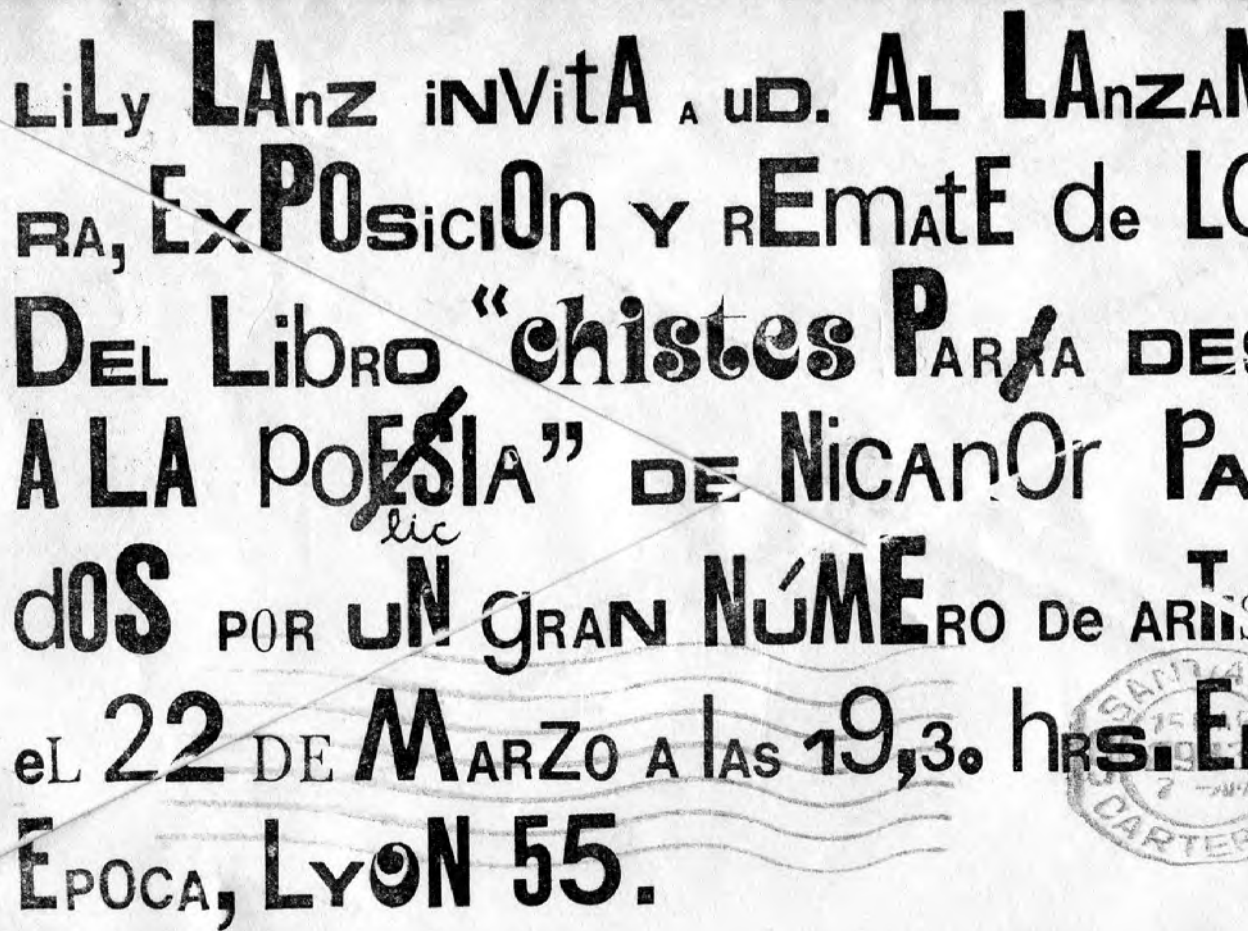 LiLy LAnZ iNVitA A uD. AL LAnZAM
RA, ExPOsiciOn Y REmAtE de LO
DEL LibRO "chistes PARRA DES
A LA POESIA" DE NiCAnOr PA
lic
dOS POR uN gRAN NÚMERO De ARTIS
eL 22 DE MARZO A lAS 19,30 hRS. EN
EPOCA, LYON 55.
SANTIA
CARTER